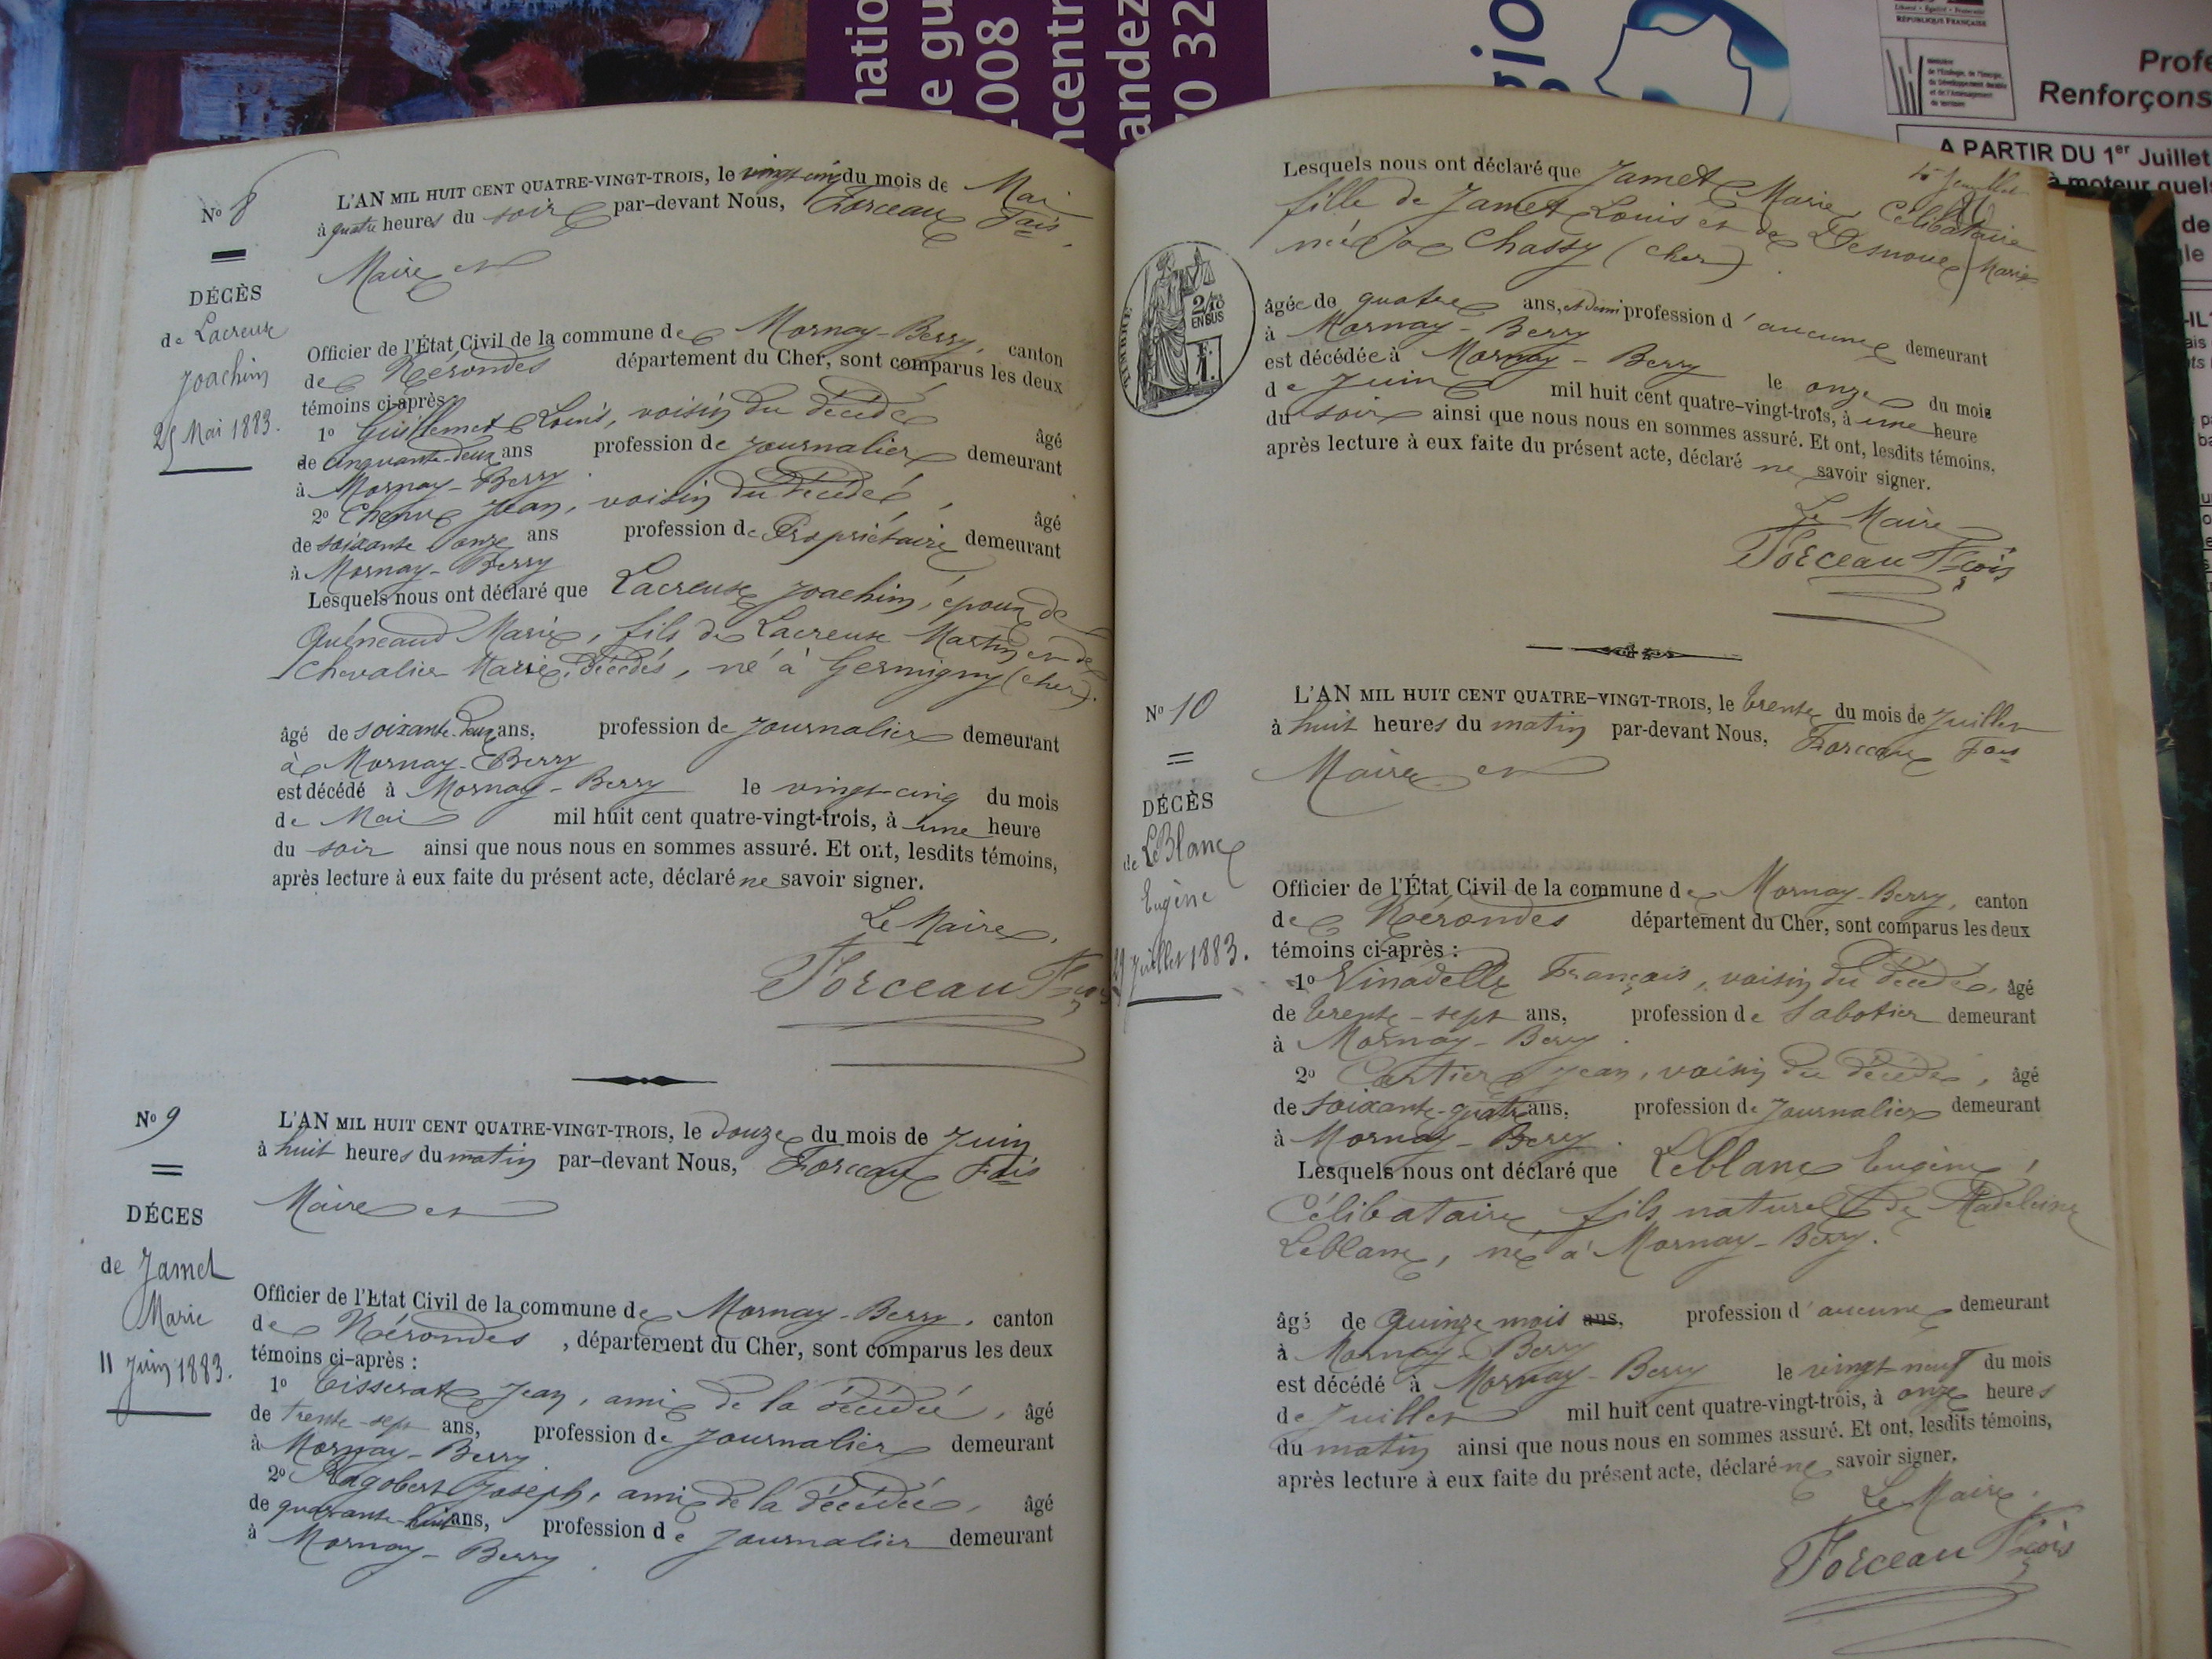 natio
e gu
2008
ncentr
andez
70 32
gio
Liberté • Égalité • Fraternité
RÉPUBLIQUE FRANÇAISE
Profe
Renforçons
A PARTIR DU 1er Juillet
à moteur quels
No 8
DÉCÈS
de Lacreuse
Joachim
25 Mai 1883.
L'AN MIL HUIT CENT QUATRE-VINGT-TROIS, le vingt-cinq du mois de Mai
à quatre heures du soir par-devant Nous, Forceau Fçois
Maire et
Officier de l'État Civil de la commune de Mornay-Berry, canton
de Nérondes département du Cher, sont comparus les deux
témoins ci-après
1o Guillemet Louis, voisin du décédé âgé
de cinquante-deux ans profession de journalier demeurant
à Mornay-Berry.
2o Chenu Jean, voisin du décédé, âgé
de soixante onze ans profession de Propriétaire demeurant
à Mornay-Berry
Lesquels nous ont déclaré que Lacreuse Joachim, époux de
Quéneaud Marie, fils de Lacreuse Martin et de
Chevalier Marie, décédés, né à Germigny (Cher).
âgé de soixante-deux ans, profession de journalier demeurant
à Mornay-Berry
est décédé à Mornay-Berry le vingt-cinq du mois
de Mai mil huit cent quatre-vingt-trois, à une heure
du soir ainsi que nous nous en sommes assuré. Et ont, lesdits témoins,
après lecture à eux faite du présent acte, déclaré ne savoir signer.
Le Maire,
Forceau Fçois
No 9
DÉCES
de Jamet
Marie
11 Juin 1883.
L'AN MIL HUIT CENT QUATRE-VINGT-TROIS, le douze du mois de Juin
à huit heures du matin par-devant Nous, Forceau Fçois
Maire et
Officier de l'Etat Civil de la commune de Mornay-Berry, canton
de Nérondes, département du Cher, sont comparus les deux
témoins ci-après :
1o Tisserat Jean, ami de la décédée, âgé
de trente-sept ans, profession de journalier demeurant
à Mornay-Berry
2o Ragobert Joseph, ami de la décédée, âgé
de quarante-huit ans, profession de journalier demeurant
à Mornay-Berry.
Lesquels nous ont déclaré que Jamet Marie, Célibataire
fille de Jamet Louis et de Desnoue Marie
née à Chassy (Cher).
TIMBRE
2/10es
EN SUS
âgée de quatre ans, et demi profession d'aucune demeurant
à Mornay-Berry
est décédée à Mornay-Berry le onze du mois
de Juin mil huit cent quatre-vingt-trois, à une heure
du soir ainsi que nous nous en sommes assuré. Et ont, lesdits témoins,
après lecture à eux faite du présent acte, déclaré ne savoir signer.
Le Maire
Forceau Fçois
No 10
DÉCÈS
de LeBlanc
Eugène
29 Juillet 1883.
L'AN MIL HUIT CENT QUATRE-VINGT-TROIS, le trente du mois de Juillet
à huit heures du matin par-devant Nous, Forceau Fçois
Maire et
Officier de l'État Civil de la commune de Mornay-Berry, canton
de Nérondes département du Cher, sont comparus les deux
témoins ci-après :
1o Vinadelle François, voisin du décédé, âgé
de trente-sept ans, profession de Sabotier demeurant
à Mornay-Berry.
2o Cartier Jean, voisin du décédé, âgé
de soixante-quatre ans, profession de journalier demeurant
à Mornay-Berry.
Lesquels nous ont déclaré que Leblanc Eugène,
Célibataire, fils naturel de Madeleine
Leblanc, né à Mornay-Berry.
âgé de quinze mois ans, profession d'aucune demeurant
à Mornay-Berry
est décédé à Mornay-Berry le vingt neuf du mois
de Juillet mil huit cent quatre-vingt-trois, à onze heures
du matin ainsi que nous nous en sommes assuré. Et ont, lesdits témoins,
après lecture à eux faite du présent acte, déclaré ne savoir signer.
Le Maire.
Forceau Fçois